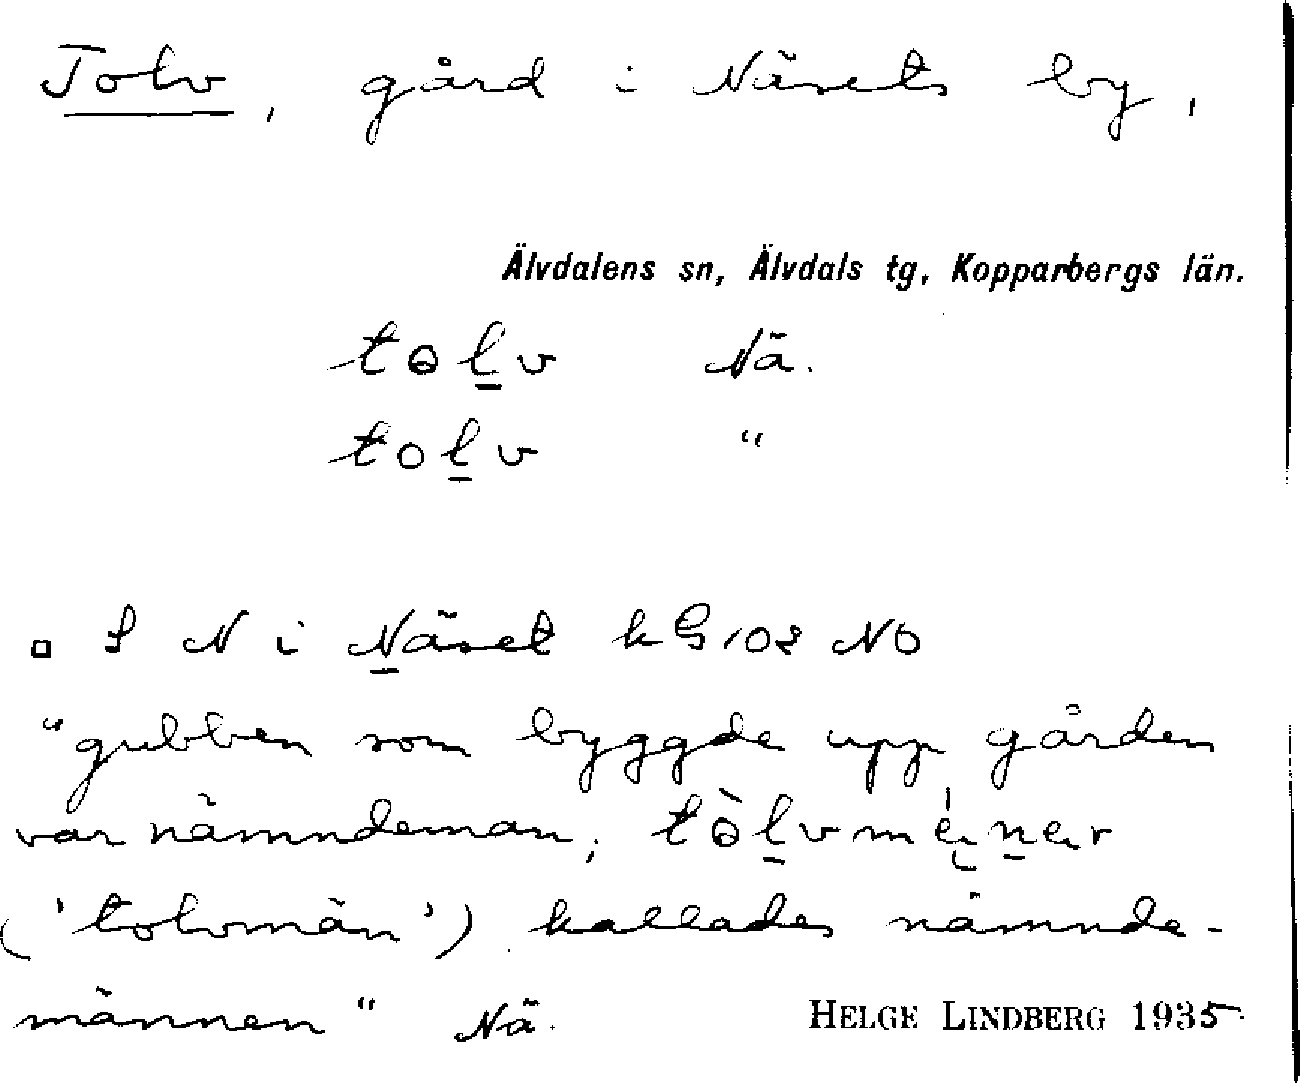 Tolv, gård i Näsets by,
Älvdalens sn, Älvdals tg, Kopparbergs län.
tɵl̲v Nä.
tol̲v "
▫ S N i Näset kG 102 NO
"gubben som byggde upp gården
var nämndeman,
('tolvmän') kallades nämnde-
männen" Nä.
HELGE LINDBERG 1935